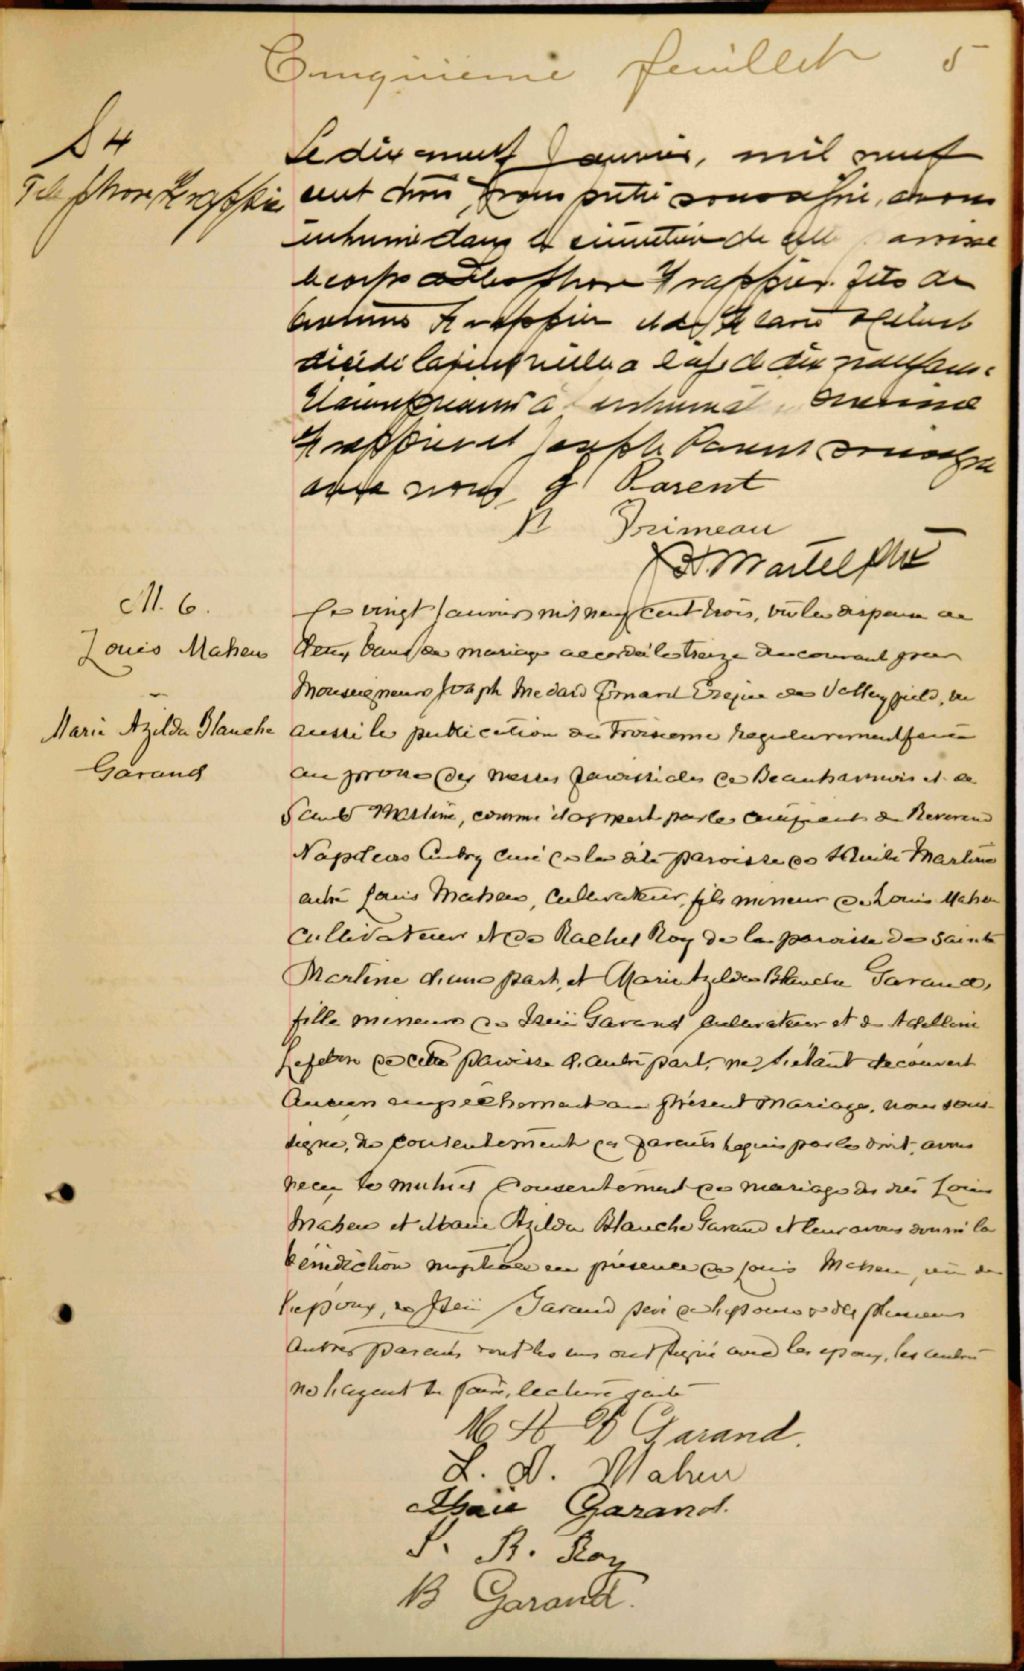 Cinquième feuillet 5
S 4
Telesphore Frappier
Le dix neuf Janvier, mil neuf
cent trois, nous prêtre soussigné, avons
inhumé dans le cimetière de cette paroisse
le corps de Telesphore Frappier fils de
Frappier et de
décédé la veille a l'age de dix neuf ans.
Etaient présents à l'inhumation
Frappier et Joseph Parent soussignés
avec nous J Parent
N Primeau
Martel Ptre
M. 6.
Louis Maheu
Marie Azilda Blanche
Garand
Le vingt Janvier mil neuf cent trois, vu la dispense de
deux bans de mariage accordée le treize du courant par
Monseigneur Joseph Medard Emard Evêque de Valleyfield, vu
aussi la publication du troisième regulièrement faite
au prone des messes paroissiales de Beauharnois et de
Sainte Martine, comme il appert par le certificat du Reverend
Napoléon curé de la dite paroisse de Sainte Martine
entre Louis Maheu, Cultivateur, fils mineur de Louis Maheu
Cultivateur et de Rachel Roy de la paroisse de Sainte
Martine d'une part, et Marie Azilda Blanche Garand,
fille mineure de Isaïe Garand Cultivateur et de
Lefebvre de cette paroisse d'autre part, ne s'étant découvert
Aucun empêchement au présent mariage, nous sous-
signé, du consentement des parents requis par le droit, avons
recu le mutuel Consentement de mariage des dits Louis
Maheu et Marie Azilda Blanche Garand et leur avons donné la
bénédiction nuptiale en présence de Louis Maheu, père de
l'époux, de Isaïe Garand père de l'épouse et de plusieurs
Autres parents dont les uns ont signé avec les epoux, les autres
ne sachant le faire, lecture faite
M A B Garand.
L. N. Maheu
Isaïe Garand.
S. R. Roy
B Garand.